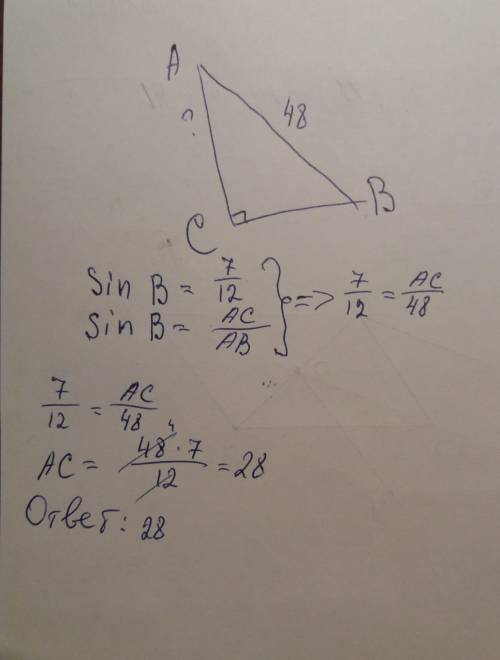 A
?
48
B
C
Sin B = 7/12
Sin B = AC/AB } => 7/12 = AC/48
7/12 = AC/48
AC = 48 · 7/12 = 28
4
Ответ: 28